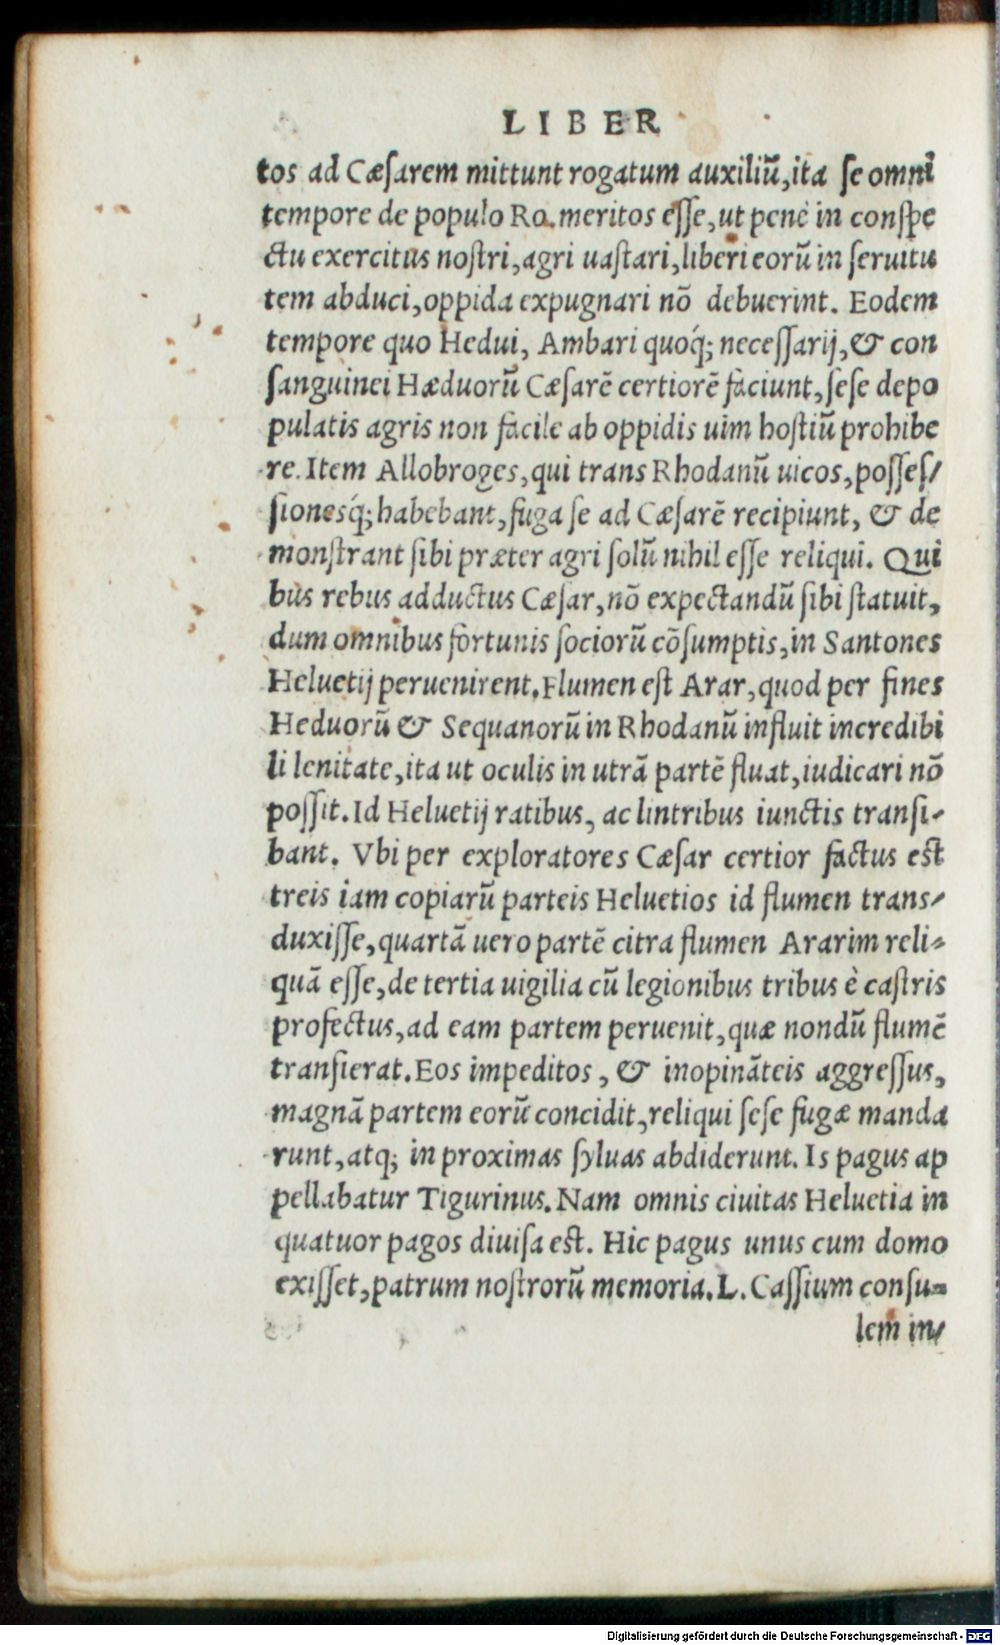 LIBER
tos ad Cæſarem mittunt rogatum auxiliũ, ita ſe omni
tempore de populo Ro. meritos eſſe, ut penè in conſpe
ctu exercitus noſtri, agri uaſtari, liberi eorũ in ſeruitu
tem abduci, oppida expugnari nõ debuerint. Eodem
tempore quo Hedui, Ambari quoq́; neceſſarij, & con
ſanguinei Hæduorũ Cæſarẽ certiorẽ faciunt, ſeſe depo
pulatis agris non facile ab oppidis uim hoſtiũ prohibe
re. Item Allobroges, qui trans Rhodanũ uicos, poſſeſ/
ſionesq́; habebant, fuga ſe ad Cæſarẽ recipiunt, & de
monſtrant ſibi præter agri ſolũ nihil eſſe reliqui. Qui
bus rebus adductus Cæſar, nõ expectandũ ſibi ſtatuit,
dum omnibus fortunis ſociorũ cõſumptis, in Santones
Heluetij peruenirent. Flumen eſt Arar, quod per fines
Heduorũ & Sequanorũ in Rhodanũ influit incredibi
li lenitate, ita ut oculis in utrã partẽ fluat, iudicari nõ
poſſit. Id Heluetij ratibus, ac lintribus iunctis tranſi-
bant. Vbi per exploratores Cæſar certior factus eſt
treis iam copiarũ parteis Heluetios id flumen trans/
duxiſſe, quartã uero partẽ citra flumen Ararim reli-
quã eſſe, de tertia uigilia cũ legionibus tribus è caſtris
profectus, ad eam partem peruenit, quæ nondũ flumẽ
tranſierat. Eos impeditos, & inopinãteis aggreſſus,
magnã partem eorũ concidit, reliqui ſeſe fugæ manda
runt, atq; in proximas ſyluas abdiderunt. Is pagus ap
pellabatur Tigurinus. Nam omnis ciuitas Heluetia in
quatuor pagos diuiſa eſt. Hic pagus unus cum domo
exiſſet, patrum noſtrorũ memoria. L. Caſſium conſu-
lem in/
Digitalisierung gefördert durch die Deutsche Forschungsgemeinschaft - DFG